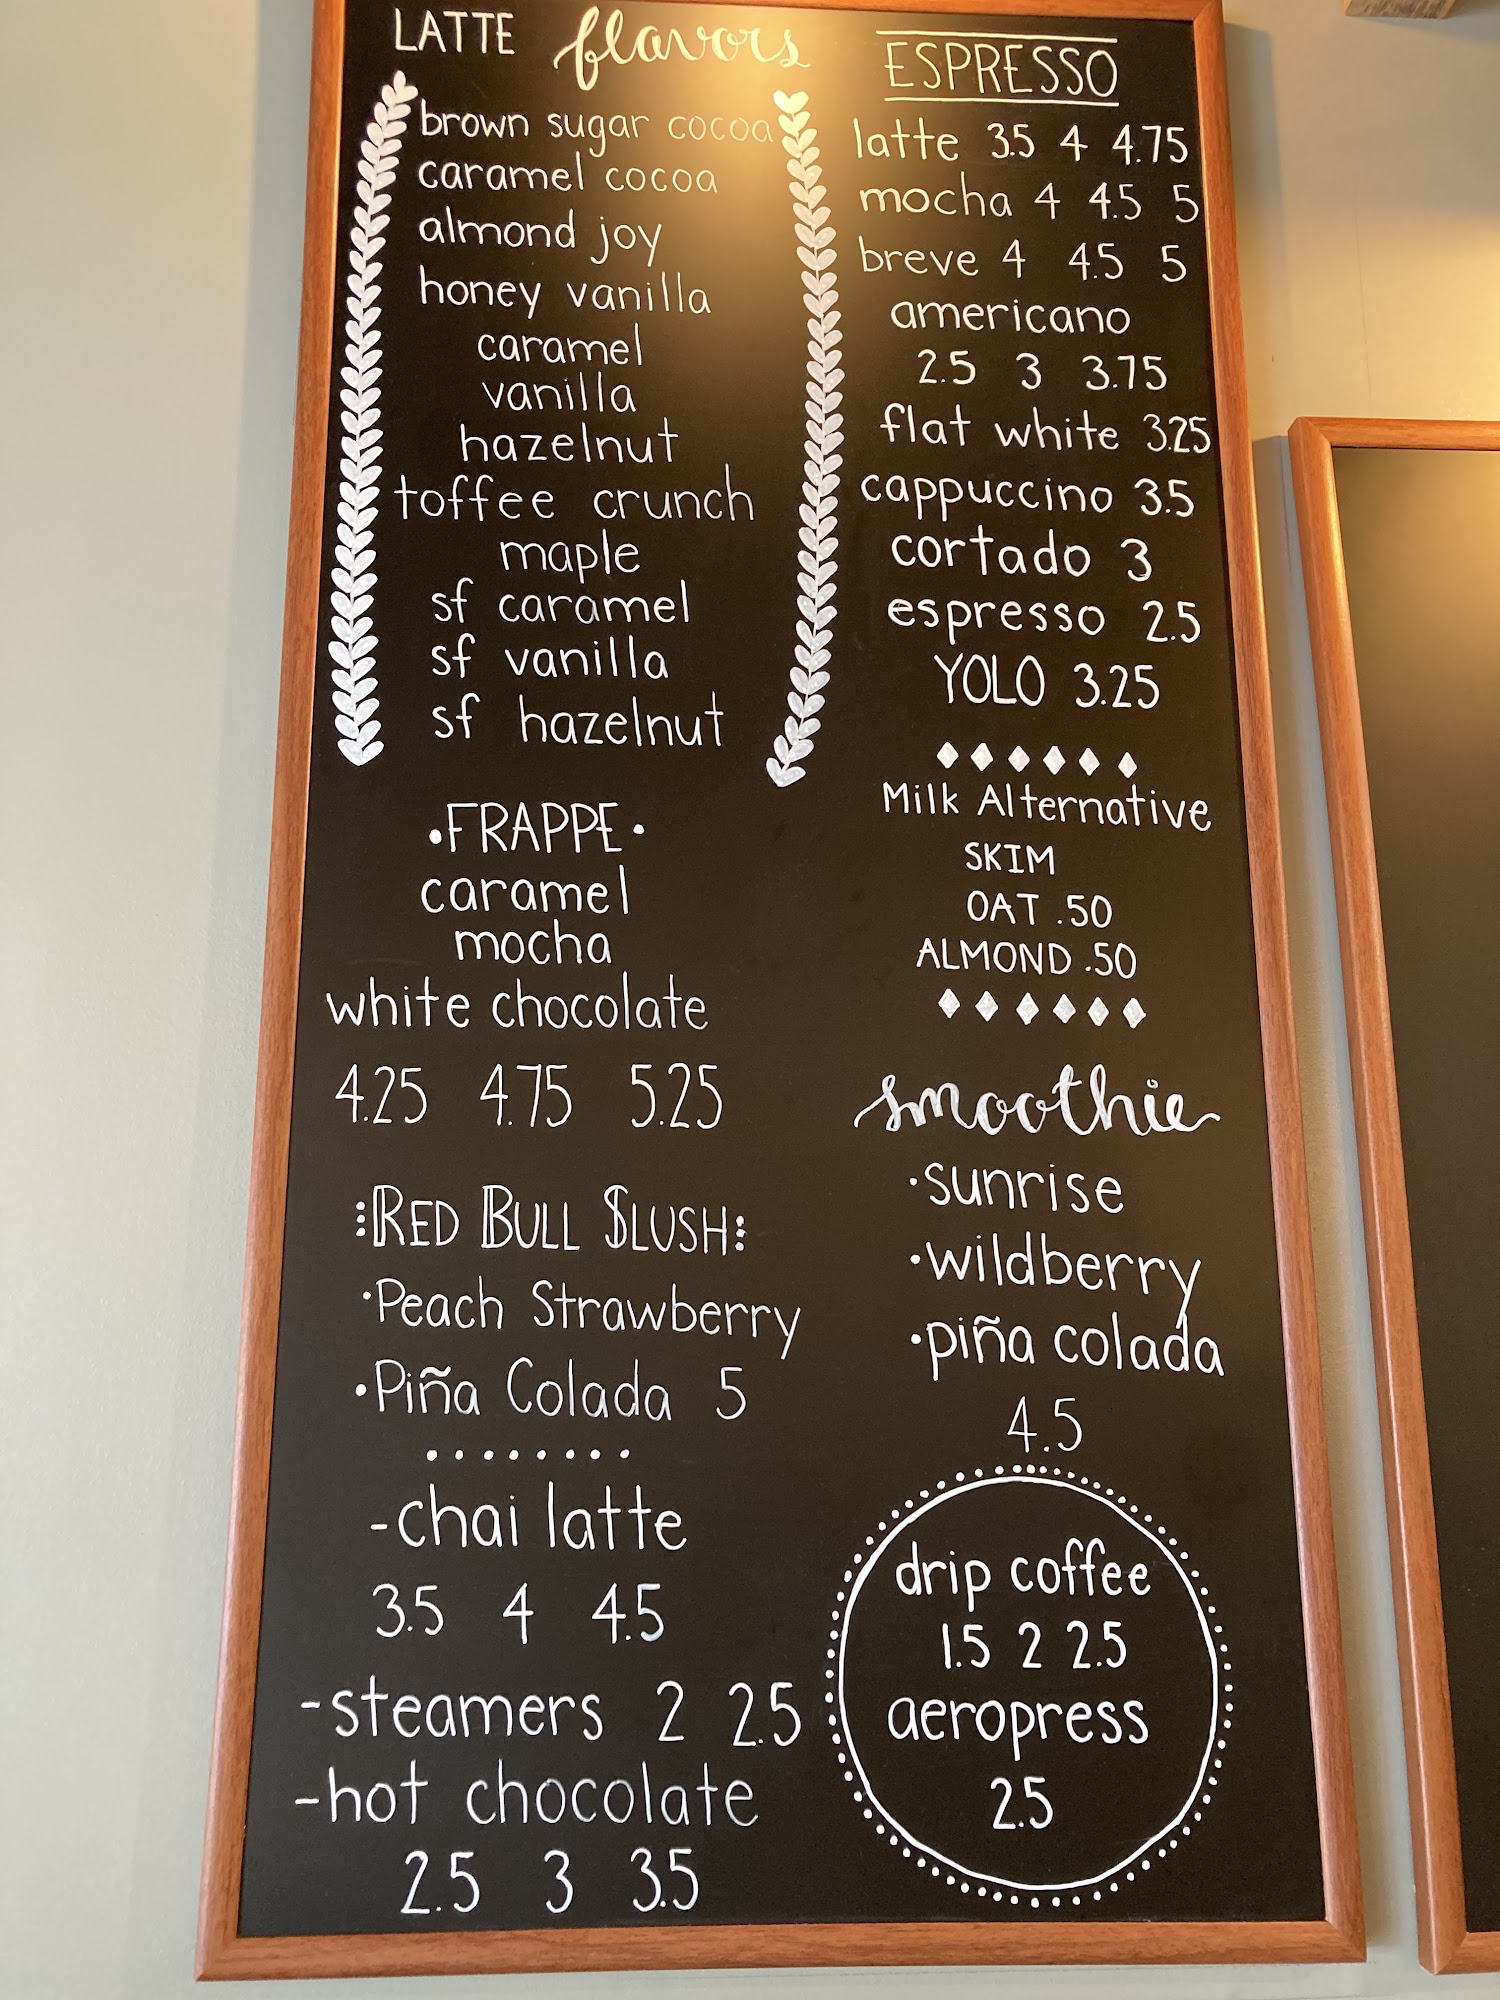 LATTE flavors
brown sugar cocoa
caramel cocoa
almond joy
honey vanilla
caramel
vanilla
hazelnut
toffee crunch
maple
sf caramel
sf vanilla
sf hazelnut
•FRAPPE•
caramel
mocha
white chocolate
4.25 4.75 5.25
RED BULL SLUSH
•Peach Strawberry
•Piña Colada 5
-chai latte
3.5 4 4.5
-steamers 2 2.5
-hot chocolate
2.5 3 3.5
ESPRESSO
latte 3.5 4 4.75
mocha 4 4.5 5
breve 4 4.5 5
americano
2.5 3 3.75
flat white 3.25
cappuccino 3.5
cortado 3
espresso 2.5
YOLO 3.25
Milk Alternative
SKIM
OAT .50
ALMOND .50
smoothie
•sunrise
•wildberry
•piña colada
4.5
drip coffee
1.5 2 2.5
aeropress
2.5